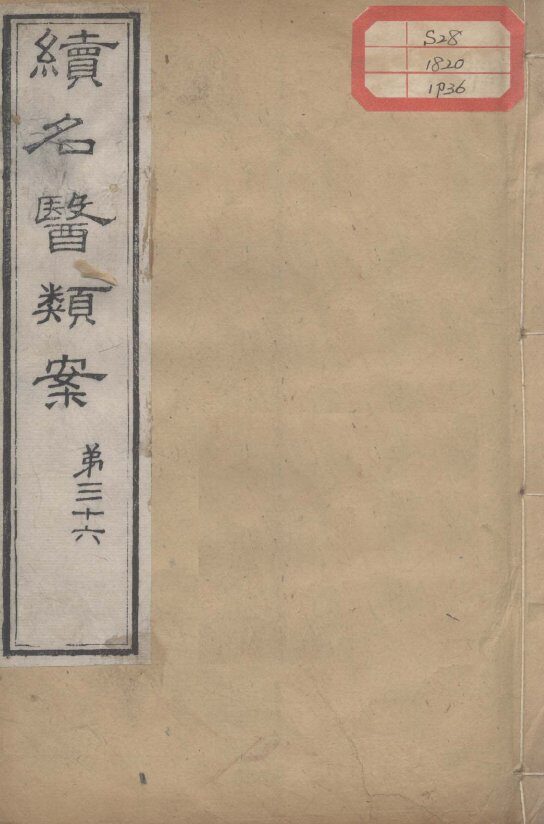 續名醫類案
弟三十六
S28
1820
1P36